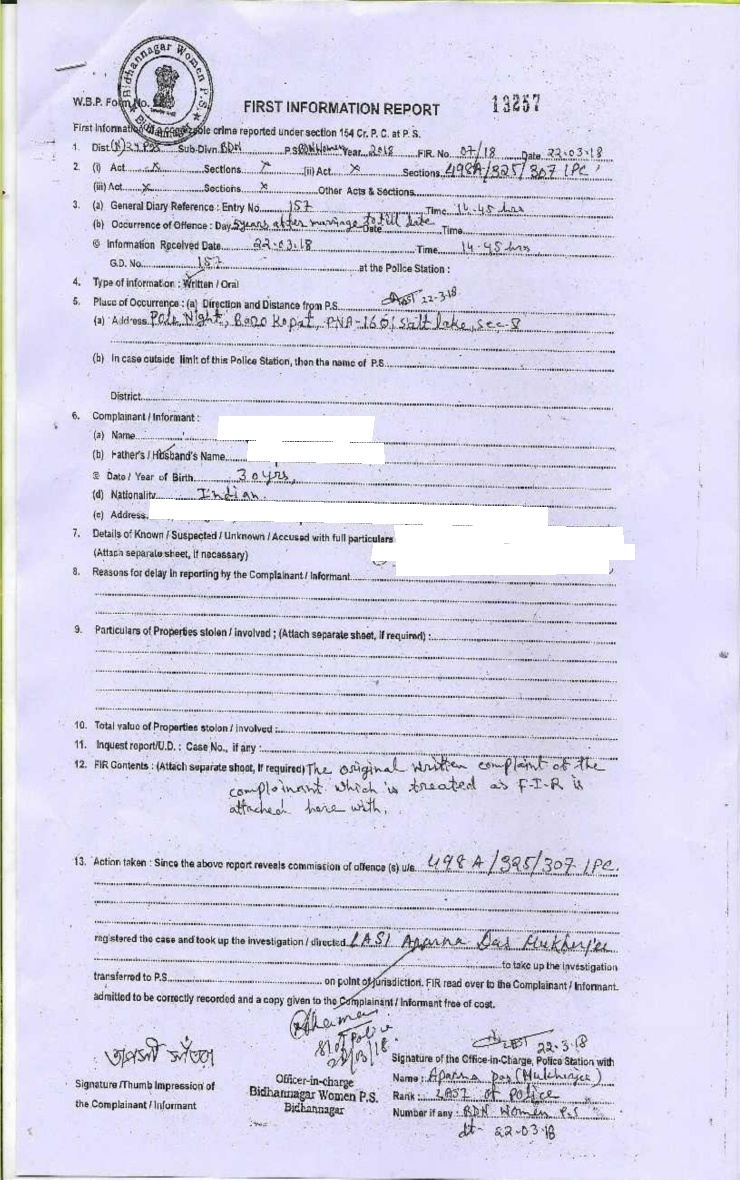 Bidhannagar Women P.S.
W.B.P. Form No.
FIRST INFORMATION REPORT
13257
First Information of a cognizable crime reported under section 154 Cr. P. C. at P. S.
1. Dist (N) 24 PGS Sub-Divn. BDN P.S BDN Women Year 2018 FIR. No. 07/18 Date 22-03-18
2. (i) Act x Sections x (ii) Act x Sections 498A/325/307 IPC
(iii) Act x Sections x Other Acts & Sections
3. (a) General Diary Reference : Entry No. 157 Time 14.45 hrs
(b) Occurrence of Offence : Day 5years after marriage to till date Date Time
© Information Received Date 22-03-18 Time 14-45 hrs
G.D. No. 157 at the Police Station :
4. Type of information : Written / Oral
22-3-18
5. Place of Occurrence : (a) Direction and Distance from P.S.
(a) Address Pole Night, PNA-166, Salt lake, Sec-
(b) In case outside limit of this Police Station, then the name of P.S.
District
6. Complainant / Informant :
(a) Name
(b) Father's / Husband's Name
© Date / Year of Birth 30 yrs,
(d) Nationality Indian.
(e) Address
7. Details of Known / Suspected / Unknown / Accused with full particulars
(Attach separate sheet, if necessary)
8. Reasons for delay in reporting by the Complainant / Informant
9. Particulars of Properties stolen / involved ; (Attach separate sheet, if required) :
10. Total value of Properties stolen / involved :
11. Inquest report/U.D. : Case No., if any :
12. FIR Contents : (Attach separate sheet, If required) The original written complaint of the
complainant which is treated as F-I-R is
attached here with.
13. Action taken : Since the above report reveals commission of offence (s) u/s. 498 A/325/307 IPC.
registered the case and took up the investigation / directed LASI Aparna Das Mukherjee
to take up the investigation
transferred to P.S. on point of jurisdiction. FIR read over to the Complainant / Informant.
admitted to be correctly recorded and a copy given to the Complainant / Informant free of cost.
SI of Police
22/03/18.
তাপসী সাঁতরা
22-3-18
Signature of the Office-in-Charge, Police Station with
Signature /Thumb Impression of
the Complainant / Informant
Officer-in-charge
Bidhannagar Women P.S.
Bidhannagar
Name : Aparna Das (Mukherjee)
Rank : LASI of Police
Number if any : BDN Women P.S
dt- 22-03-18